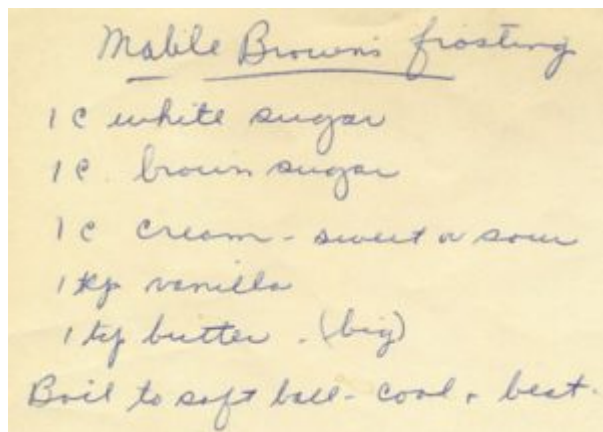 Mable Brown's frosting
1 c white sugar
1 c. brown sugar
1 c cream - sweet or sour
1 tsp vanilla
1 tsp butter. (big)
Boil to soft ball - cool & beat.